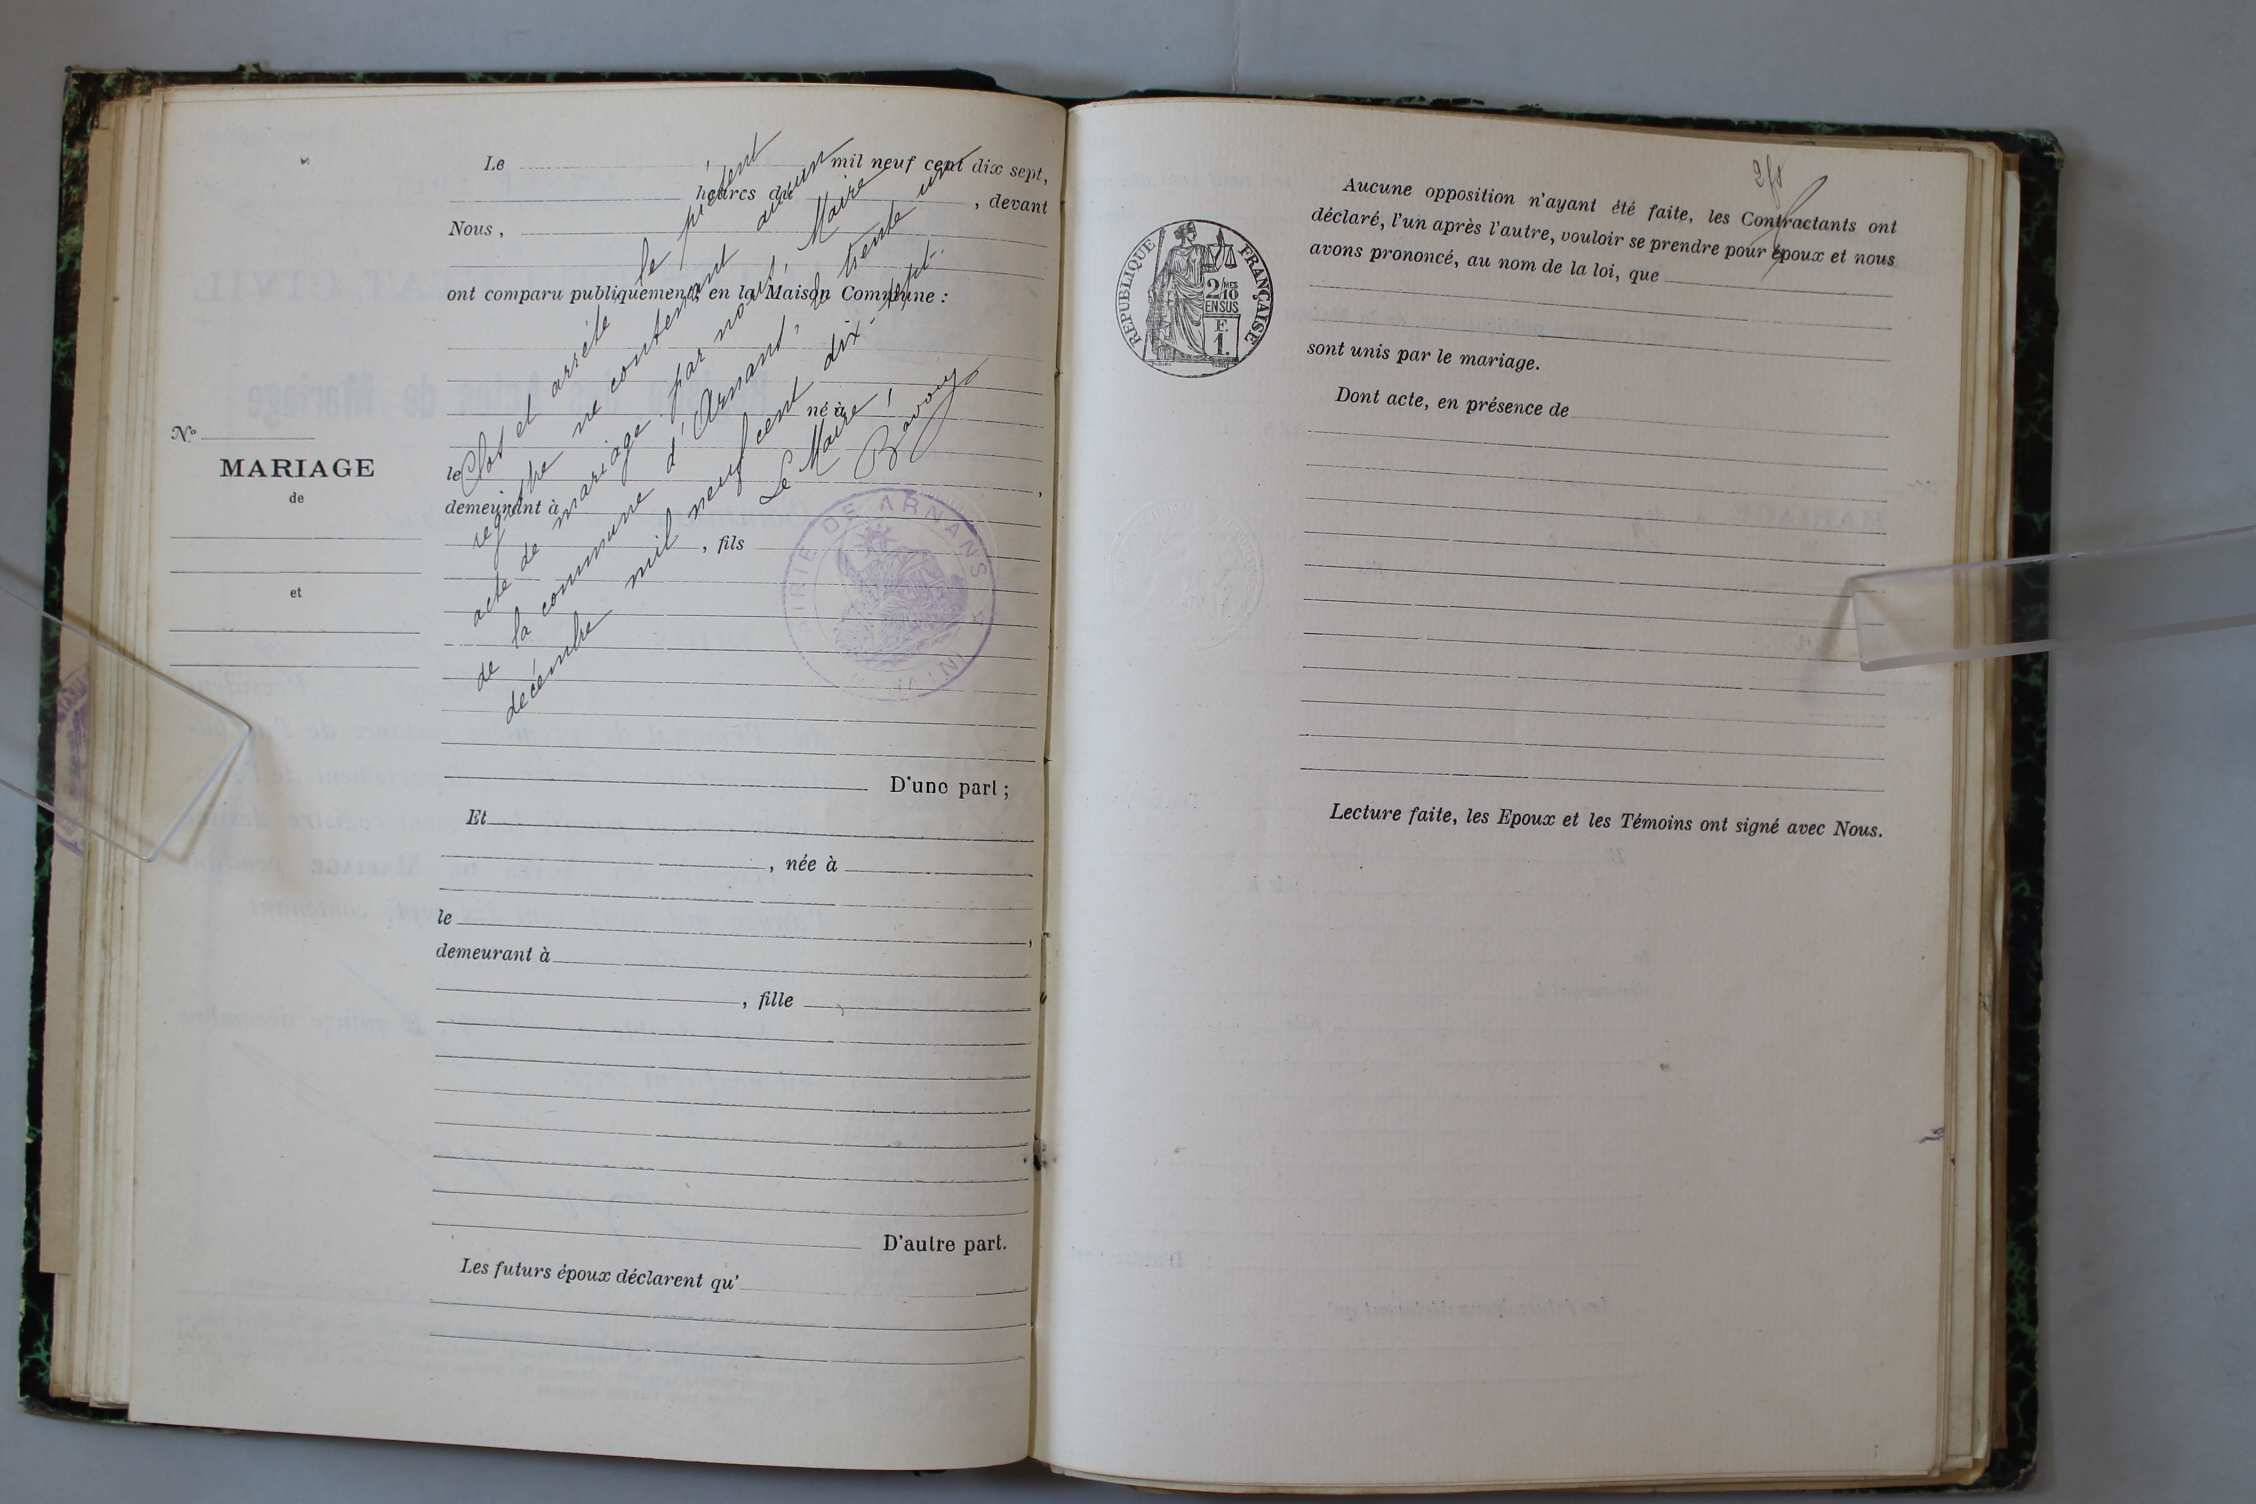 Le mil neuf cent dix sept,
heures du , devant
Nous ,
ont comparu publiquement, en la Maison Commune :
né à
le ,
demeurant à
, fils
D'une part ;
Et
, née à
le ,
demeurant à
, fille
D'autre part.
Les futurs époux déclarent qu'
N°
MARIAGE
de
et
Clos et arrêté le présent
registre ne contenant aucun
acte de mariage par nous, Maire
de la commune d'Arnans, le trente un
décembre mil neuf cent dix-sept.
Le Maire,
MAIRIE DE ARNANS
2/8
RÉPUBLIQUE FRANÇAISE
2/10MES
EN SUS
F.
1.
Aucune opposition n'ayant été faite, les Contractants ont
déclaré, l'un après l'autre, vouloir se prendre pour époux et nous
avons prononcé, au nom de la loi, que
sont unis par le mariage.
Dont acte, en présence de
Lecture faite, les Epoux et les Témoins ont signé avec Nous.